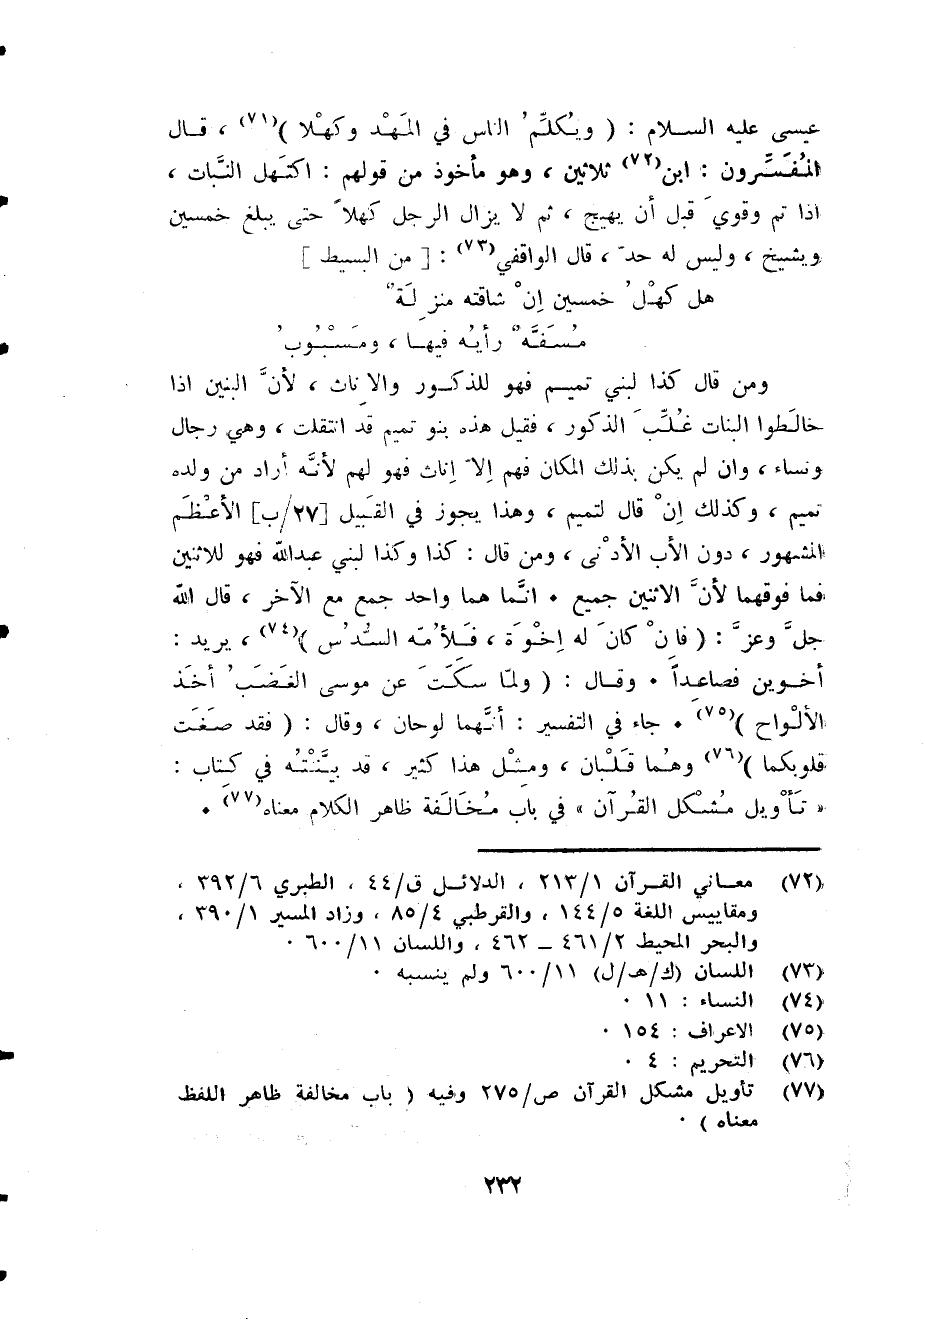 عيسى عليه السلام : ( ويُكلِّمُ الناس في المَهْد وكهْلا )(٧١) ، قال
المُفَسِّرون : ابن(٧٢) ثلاثين ، وهو مأخوذ من قولهم : اكتهل النَّبات ،
اذا تم وقويَ قبل أن يهيج ، ثم لا يزال الرجل كهلاً حتى يبلغ خمسين
ويشيخ ، وليس له حدّ ، قال الواقفي(٧٣) : [ من البسيط ]
هل كهْلُ خمسين إنْ شاقته منزِلَةٌ
مُسَفَّهٌ رأيُه فيها ، ومَسْبُوبُ
ومن قال كذا لبني تميم فهو للذكور والاِناث ، لأنَّ البنين اذا
خالَطوا البنات غُلِّبَ الذكور ، فقيل هذه بنو تميم قد انتقلت ، وهي رجال
ونساء ، وان لم يكن بذلك المكان فهم إلاّ إناث فهو لهم لأنَّه أراد من ولده
تميم ، وكذلك إنْ قال لتميم ، وهذا يجوز في القَبيل [٢٧/ب] الأعْظَم
المشهور ، دون الأب الأدْنى ، ومن قال : كذا وكذا لبني عبدالله فهو للاثنين
فما فوقهما لأنَّ الاثنين جميع ٠ انَّما هما واحد جمع مع الآخر ، قال الله
جلَّ وعزَّ : ( فاِنْ كانَ له اِخْوَة ، فَلأُمّه السُّدُس )(٧٤) ، يريد :
أخوين فصاعداً ٠ وقال : ( ولمّا سكَتَ عن موسى الغَضَبُ أخَذ
الألْواح )(٧٥) ٠ جاء في التفسير : أنَّهما لوحان ، وقال : ( فقد صَغَت
قلوبكما )(٧٦) وهُما قَلْبان ، ومِثْل هذا كثير ، قد بيَّنْتُه في كتاب :
« تأْويل مُشْكل القُرآن » في باب مُخَالَفة ظاهر الكلام معناه(٧٧) ٠
(٧٢) معاني القرآن ٢١٣/١ ، الدلائل ق/٤٤ ، الطبري ٣٩٢/٦ ،
ومقاييس اللغة ١٤٤/٥ ، والقرطبي ٨٥/٤ ، وزاد المسير ٣٩٠/١ ،
والبحر المحيط ٤٦١/٢ ــ ٤٦٢ ، واللسان ٦٠٠/١١ ٠
(٧٣) اللسان (ك/هـ/ل) ٦٠٠/١١ ولم ينسبه ٠
(٧٤) النساء : ١١ ٠
(٧٥) الاعراف : ١٥٤ ٠
(٧٦) التحريم : ٤ ٠
(٧٧) تأويل مشكل القرآن ص/٢٧٥ وفيه ( باب مخالفة ظاهر اللفظ
معناه ) ٠
٢٣٢